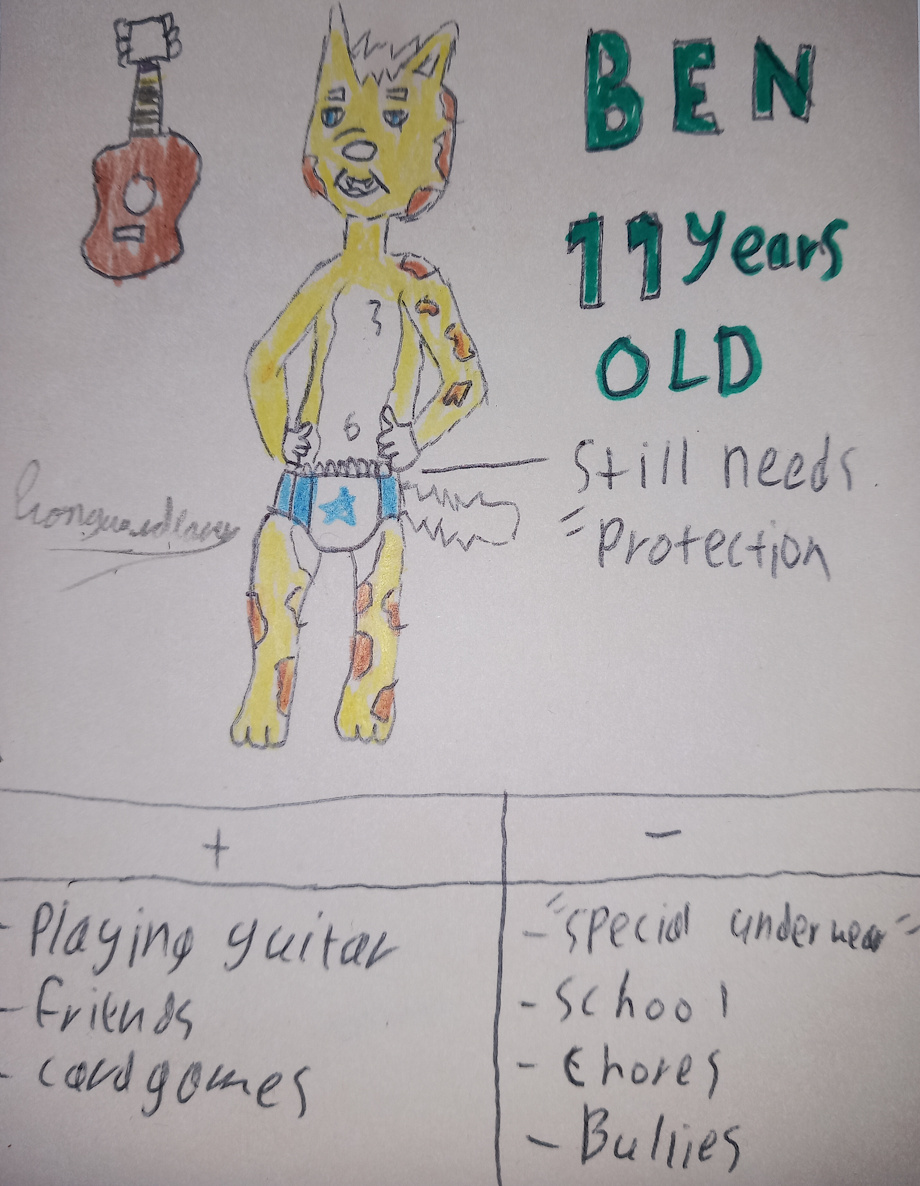 BEN
11 years
OLD
Still needs
"Protection
+
-
- Playing guitar
- friends
- cardgames
- "special underwear"
- School
- Chores
- Bullies